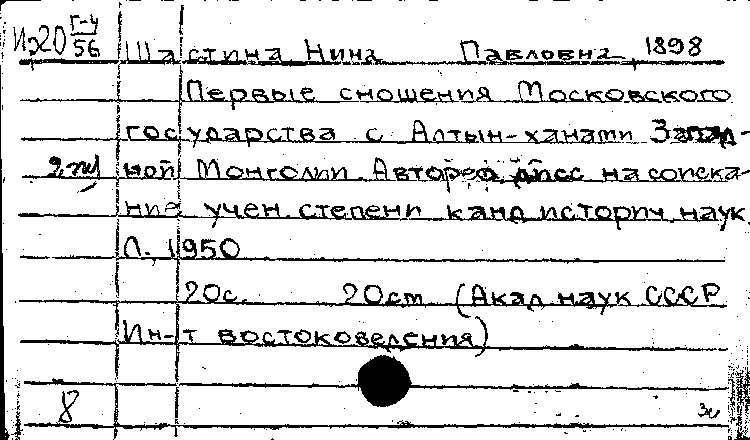 Из20 Г-4/56
Шастина Нина Павловна, 1898
Первые сношения Московского
государства с Алтын-ханами Запад-
ной Монголии. Автореф. дисс. на соиска-
ние учен. степени канд. историч. наук
Л., 1950
20с. 20см (Акад. наук СССР
Ин-т востоковедения)
8